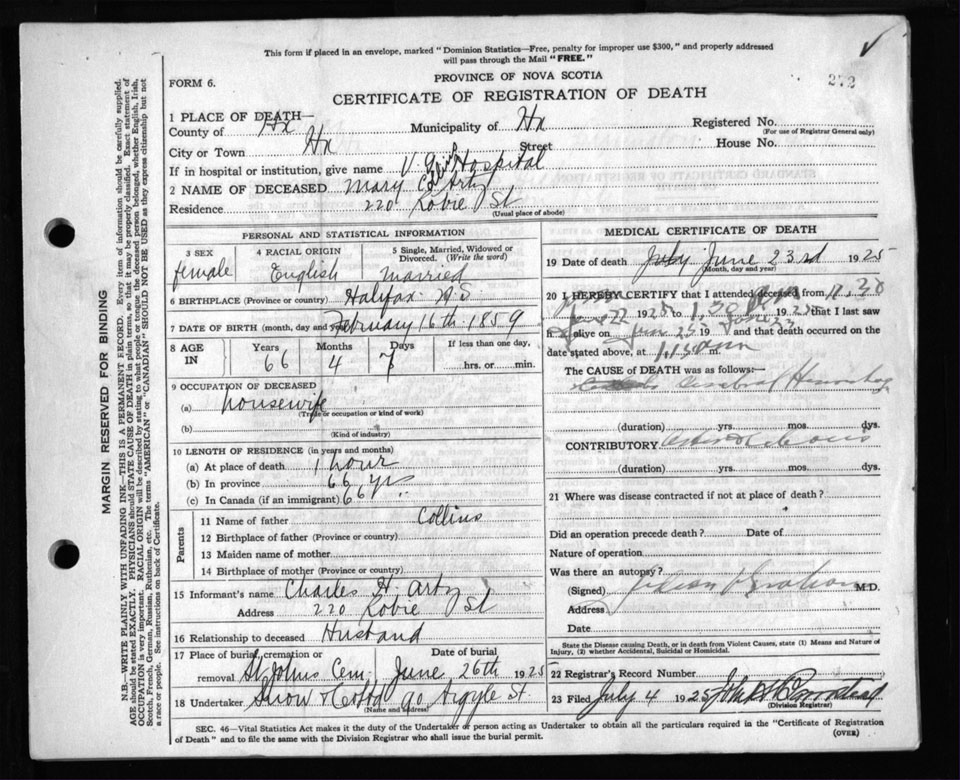 This form if placed in an envelope, marked "Dominion Statistics—Free, penalty for improper use $300," and properly addressed
will pass through the Mail "FREE."
272
FORM 6.
PROVINCE OF NOVA SCOTIA
CERTIFICATE OF REGISTRATION OF DEATH
1 PLACE OF DEATH—
County of Hx Municipality of Hx Registered No.
(For use of Registrar General only)
City or Town Hx Street House No.
If in hospital or institution, give name V. Hospital
2 NAME OF DECEASED Mary C Artz
Residence 220 Robie St
(Usual place of abode)
PERSONAL AND STATISTICAL INFORMATION
3 SEX 4 RACIAL ORIGIN 5 Single, Married, Widowed or
Divorced. (Write the word)
female English married
6 BIRTHPLACE (Province or country) Halifax N.S
7 DATE OF BIRTH (month, day and year) February 16th 1859
8 AGE IN Years Months Days If less than one day,
66 4 7 hrs. or min.
9 OCCUPATION OF DECEASED
(a) housewife
(Trade or occupation or kind of work)
(b)
(Kind of industry)
10 LENGTH OF RESIDENCE (in years and months)
(a) At place of death 1 hour
(b) In province 66 yrs
(c) In Canada (if an immigrant) 66 yrs
Parents
11 Name of father Collins
12 Birthplace of father (Province or country)
13 Maiden name of mother
14 Birthplace of mother (Province or country)
15 Informant's name Charles H Artz
Address 220 Robie St
16 Relationship to deceased Husband
17 Place of burial, cremation or Date of burial
removal St Johns Cem. June 26th 1925
18 Undertaker Snow & Co 90 Argyle St.
(Name and address)
MEDICAL CERTIFICATE OF DEATH
19 Date of death July June 23rd 1925
(Month, day and year)
20 I HEREBY CERTIFY that I attended deceased from 12.30
22 1925 to 1.30 1925 that I last saw
h alive on June 23 19 and that death occurred on the
date stated above, at 1.30 am m.
The CAUSE of DEATH was as follows:—
Cerebral Hemorrhage
(duration) yrs. mos. dys.
CONTRIBUTORY
(duration) yrs. mos. dys.
21 Where was disease contracted if not at place of death?
Did an operation precede death? Date of
Nature of operation
Was there an autopsy?
(Signed) M.D.
Address
Date
State the Disease causing Death, or in death from Violent Causes, state (1) Means and Nature of
Injury, (2) whether Accidental, Suicidal or Homicidal.
22 Registrar's Record Number
23 Filed July 4 1925
(Division Registrar)
SEC. 46—Vital Statistics Act makes it the duty of the Undertaker or person acting as Undertaker to obtain all the particulars required in the "Certificate of Registration
of Death" and to file the same with the Division Registrar who shall issue the burial permit. (OVER)
MARGIN RESERVED FOR BINDING
N.B.—WRITE PLAINLY WITH UNFADING INK—THIS IS A PERMANENT RECORD. Every item of information should be carefully supplied.
AGE should be stated EXACTLY. PHYSICIANS should STATE CAUSE OF DEATH in plain terms, so that it may be properly classified. Exact statement of
OCCUPATION is very important. RACIAL ORIGIN will be described by stating to what people or tongue the deceased person belonged, whether English, Irish,
Scotch, French, German, Russian, Ruthenian, etc. The terms "AMERICAN" or "CANADIAN" SHOULD NOT BE USED as they express citizenship but not
a race or people. See instructions on back of Certificate.